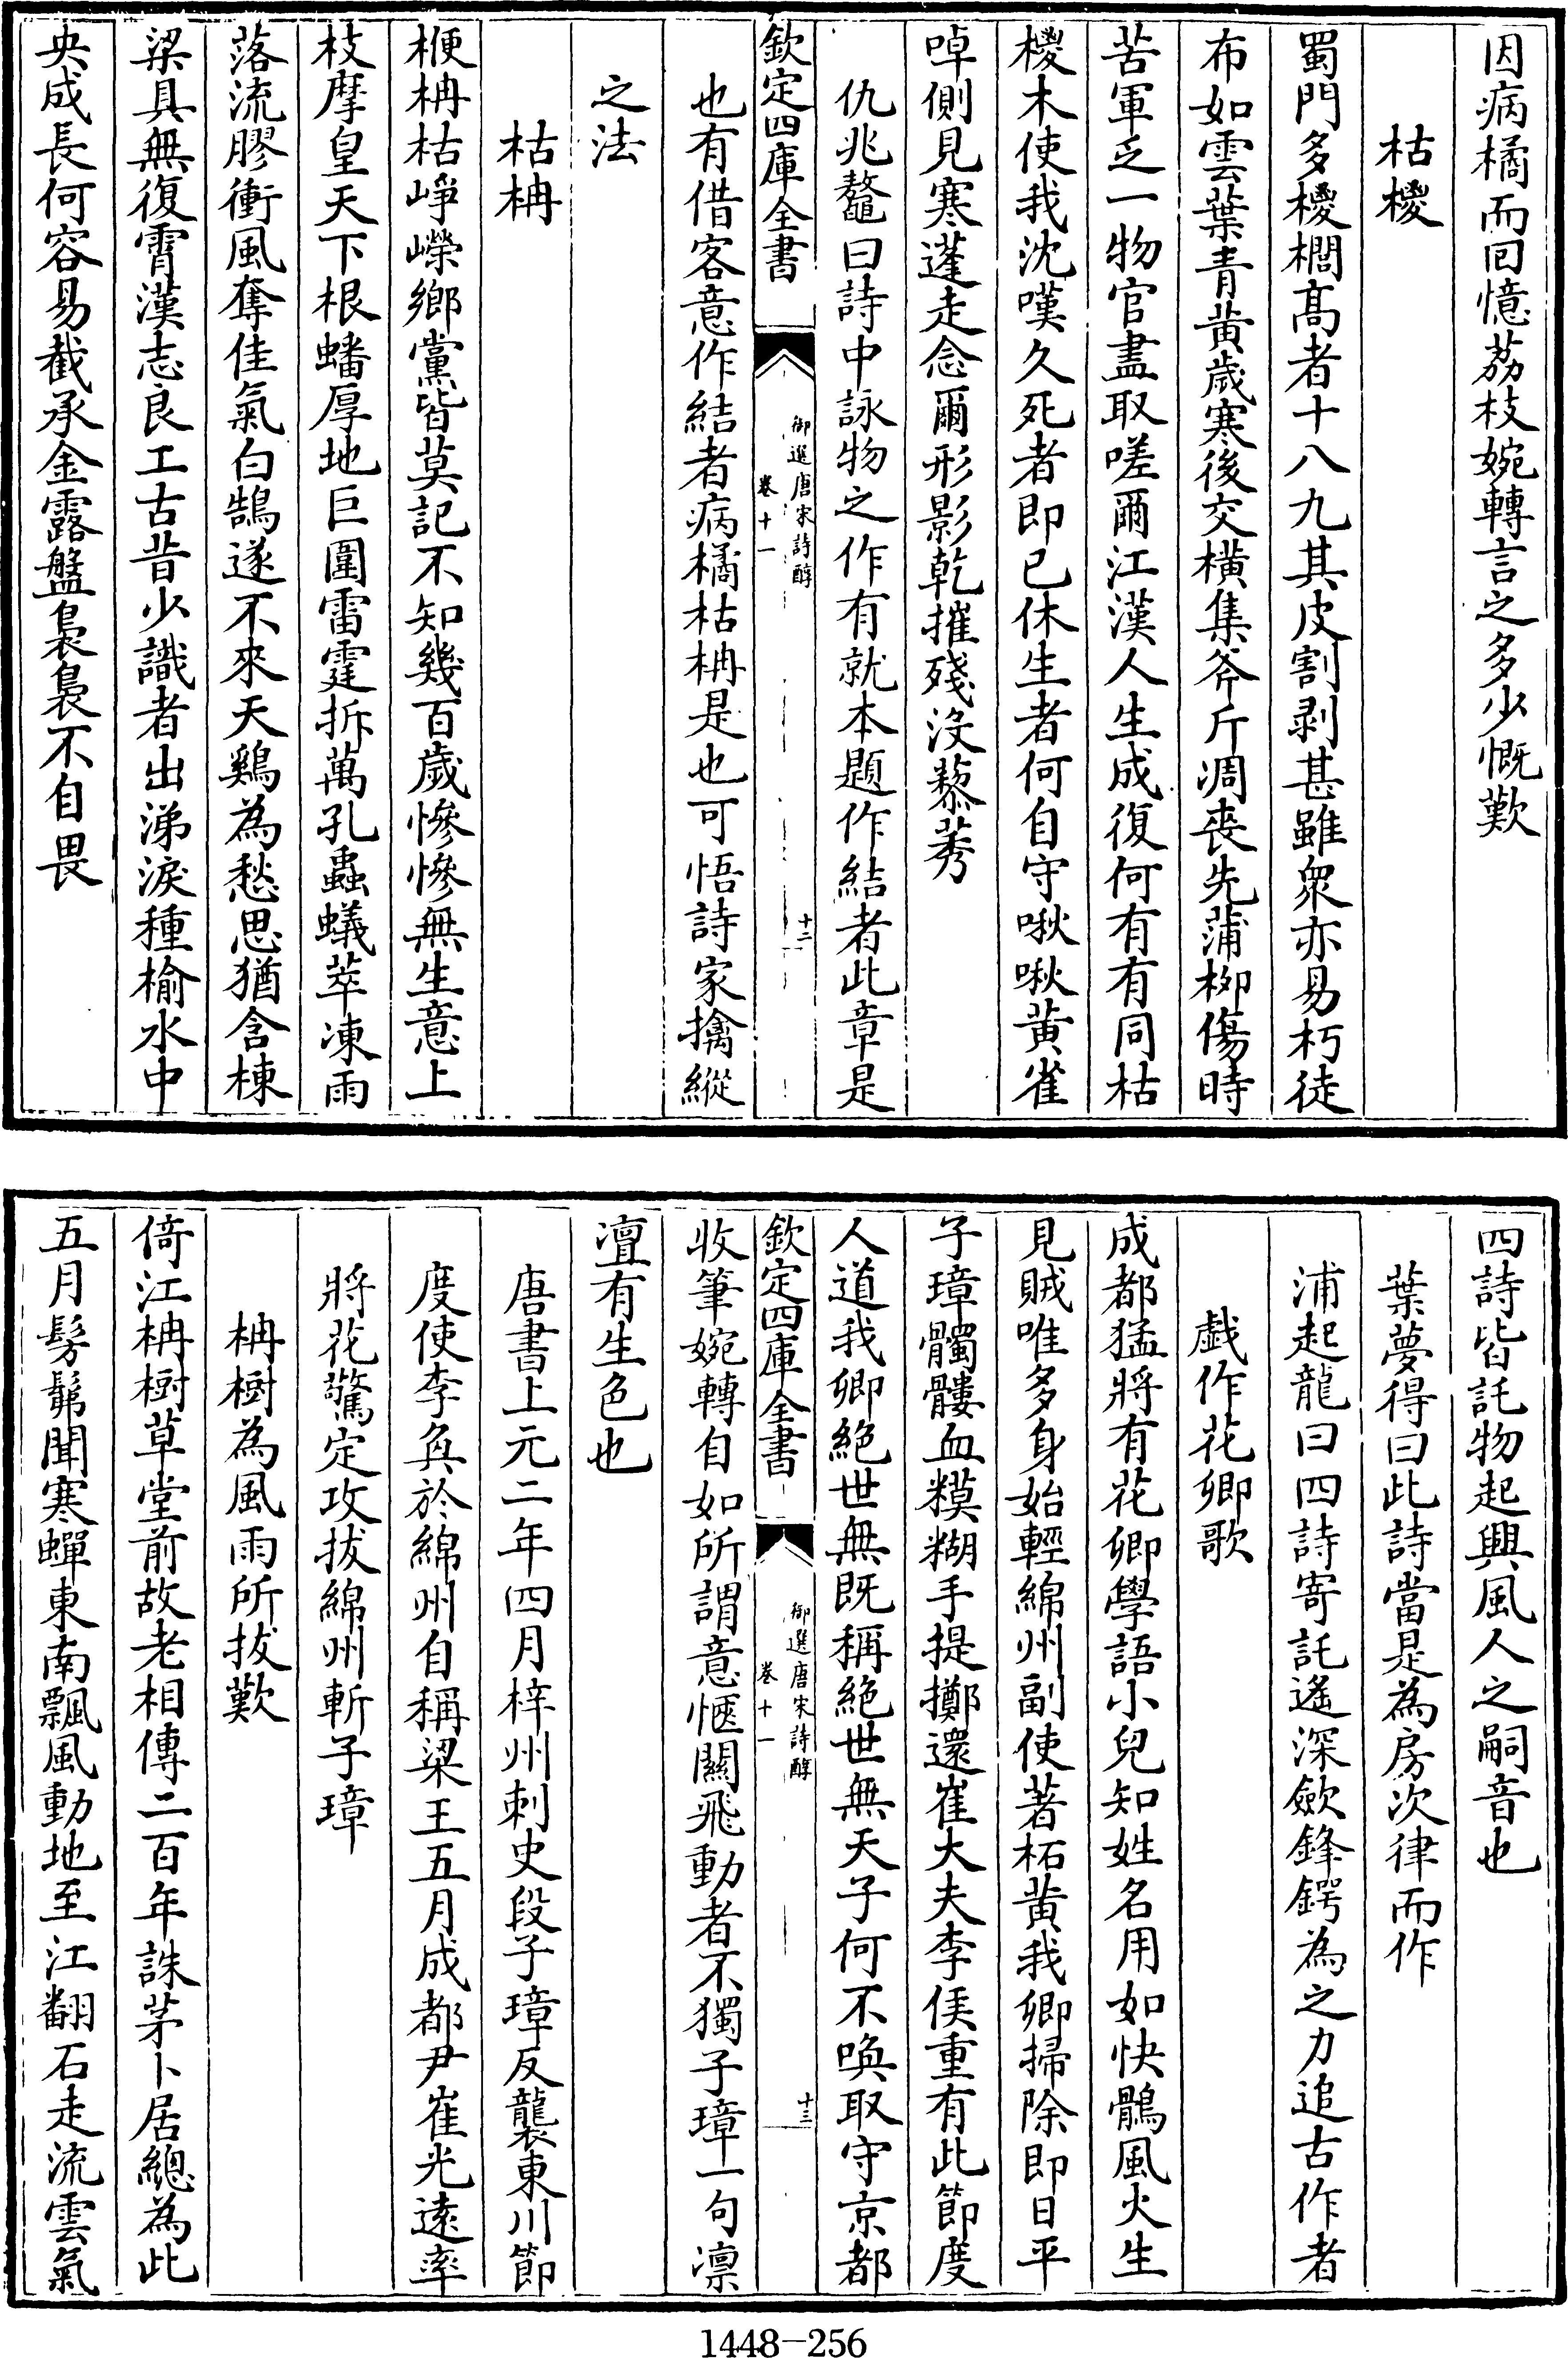 因病橘而回憶荔枝婉轉言之多少慨歎
枯椶
蜀門多椶櫚髙者十八九其皮割剥甚雖衆亦易朽徒
布如雲葉青黄歲寒後交横集斧斤凋喪先蒲栁傷時
苦軍乏一物官盡取嗟爾江漢人生成復何有有同枯
椶木使我沈嘆久死者即已休生者何自守啾啾黄雀
啅側見寒蓬走念爾形影乾摧殘沒藜莠
仇兆鼇曰詩中詠物之作有就本題作結者此章是
欽定四庫全書
御選唐宋詩醇
卷十一
十二
也有借客意作結者病橘枯柟是也可悟詩家擒縱
之法
枯柟
楩柟枯崢嶸鄉黨皆莫記不知幾百歲慘慘無生意上
枝摩皇天下根蟠厚地巨圍雷霆拆萬孔蟲蟻萃凍雨
落流膠衝風奪佳氣白鵠遂不來天鷄為愁思猶含棟
梁具無復霄漢志良工古昔少識者出涕淚種榆水中
央成長何容易截承金露盤裊裊不自畏
四詩皆託物起興風人之嗣音也
葉夢得曰此詩當是為房次律而作
浦起龍曰四詩寄託遙深斂鋒鍔為之力追古作者
戯作花卿歌
成都猛將有花卿學語小兒知姓名用如快鶻風火生
見賊唯多身始輕綿州副使著柘黄我卿掃除即日平
子璋髑髏血糢糊手提擲還崔大夫李侯重有此節度
人道我卿絶世無既稱絶世無天子何不喚取守京都
欽定四庫全書
御選唐宋詩醇
卷十一
十三
收筆婉轉自如所謂意愜關飛動者不獨子璋一句凛
凛有生色也
唐書上元二年四月梓州刺史段子璋反襲東川節
度使李奐於綿州自稱梁王五月成都尹崔光逺率
將花驚定攻拔綿州斬子璋
柟樹為風雨所拔歎
倚江柟樹草堂前故老相傳二百年誅茅卜居緫為此
五月髣髴聞寒蟬東南飄風動地至江翻石走流雲氣
1448-256